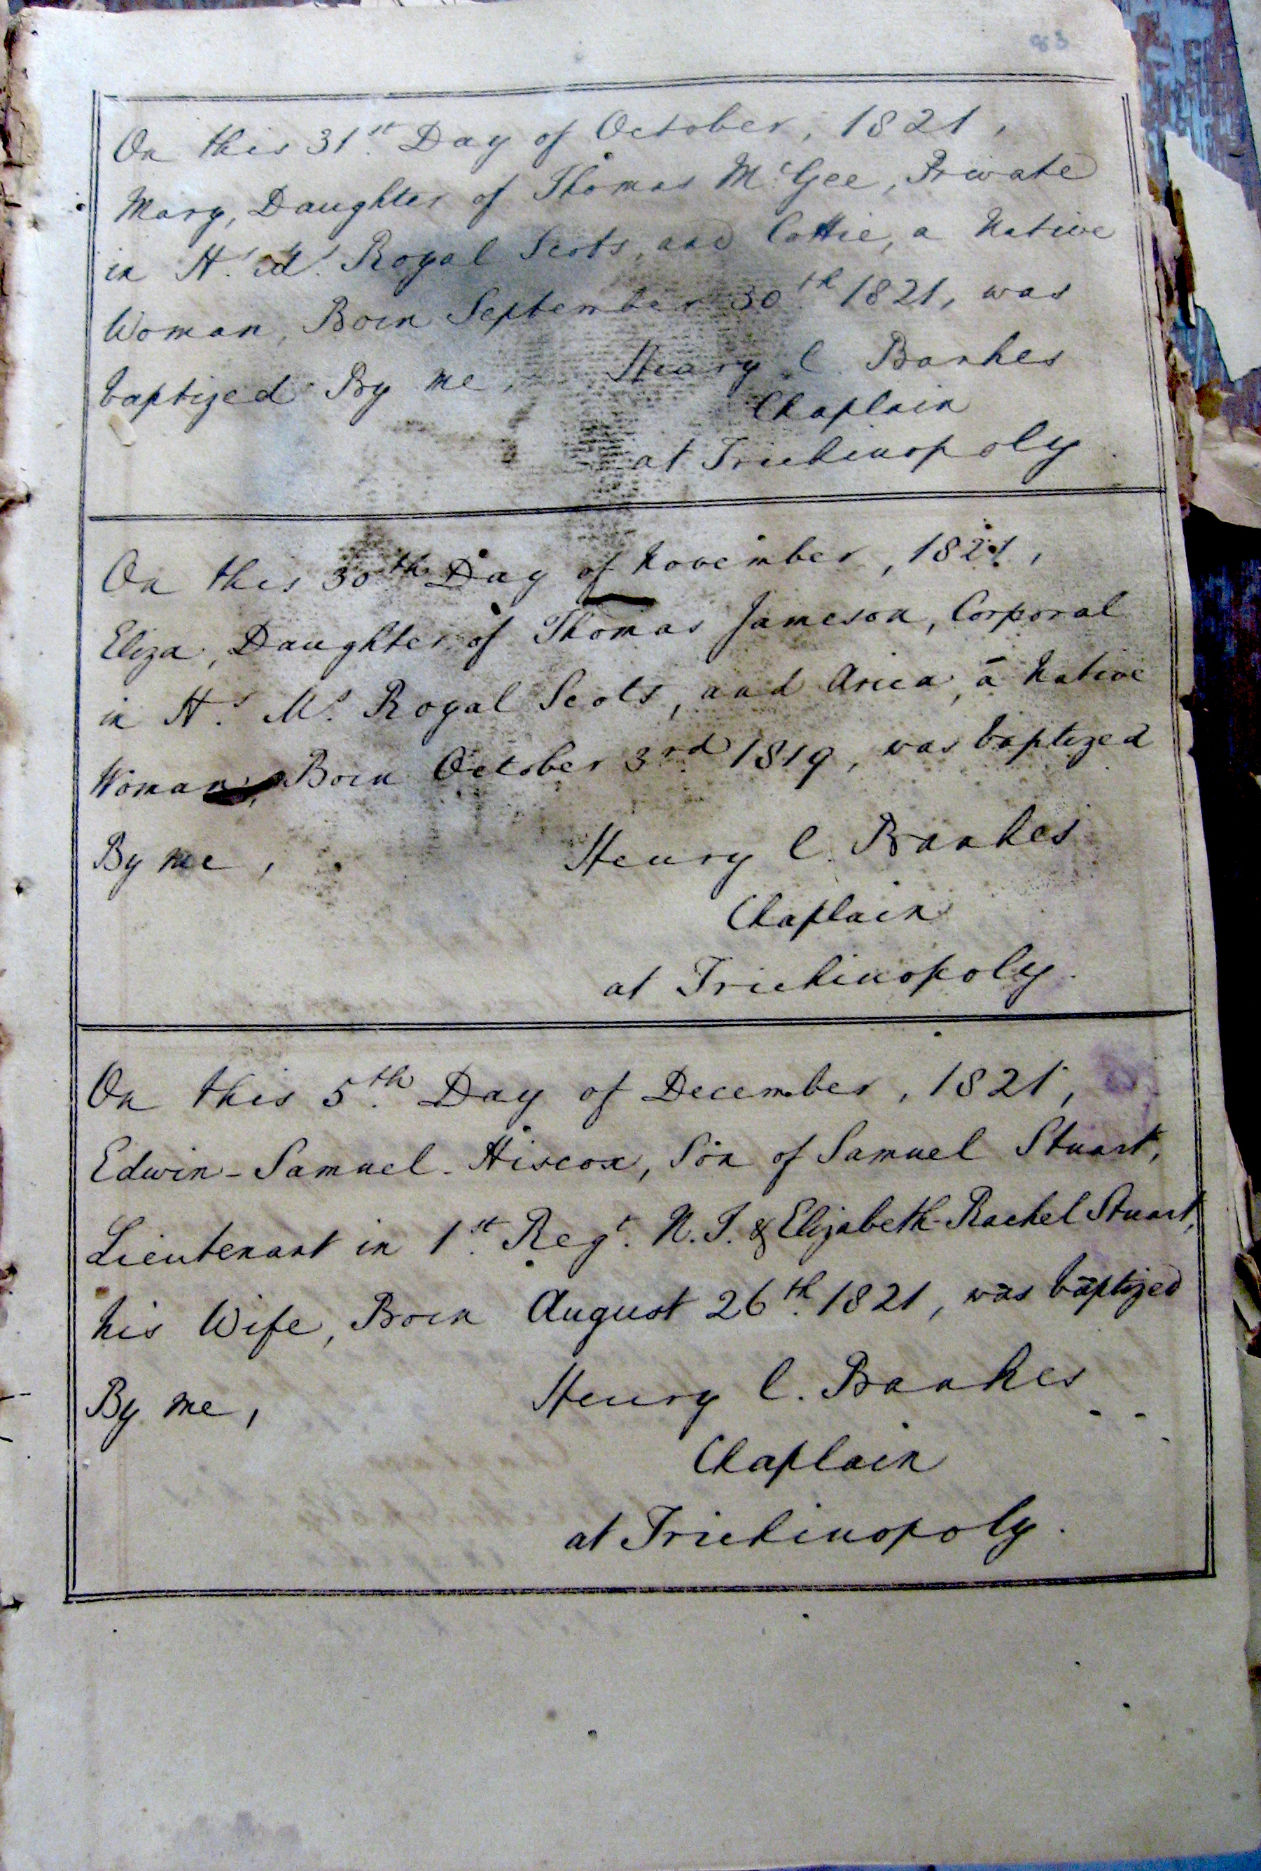 83
On this 31st Day of October, 1821,
Mary, Daughter of Thomas McGee, Private
in H.s M.s Royal Scots, and Cottie, a Native
Woman, Born September 30th 1821, was
baptized By me, Henry C. Bankes
Chaplain
at Trichinopoly.
On this 30th Day of November, 1821,
Eliza, Daughter of Thomas Jameson, Corporal
in H.s M.s Royal Scots, and Arica, a Native
Woman, Born October 3rd 1819, was baptized
By me, Henry C. Bankes
Chaplain
at Trichinopoly.
On this 5th Day of December, 1821,
Edwin-Samuel-Hiscox, Son of Samuel Stuart,
Lieutenant in 1st Regt. N.I. & Elizabeth-Rachel Stuart,
his Wife, Born August 26th 1821, was baptized
By me, Henry C. Bankes
Chaplain
at Trichinopoly.